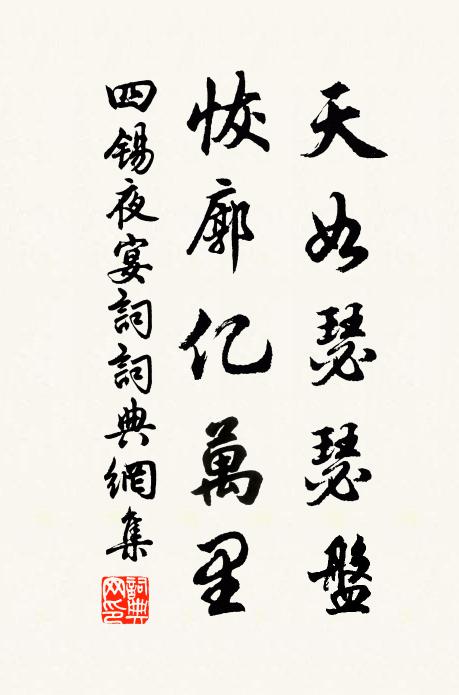 天如瑟瑟盤
恢廓亿萬里
四錫夜宴詞詞典網集
詞典网印